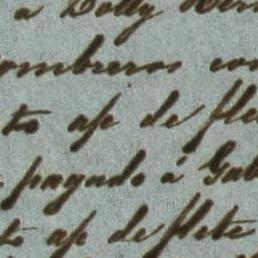 a Dolly
ombreros con
to afe de fle
pagado á Gab
to afe de flete